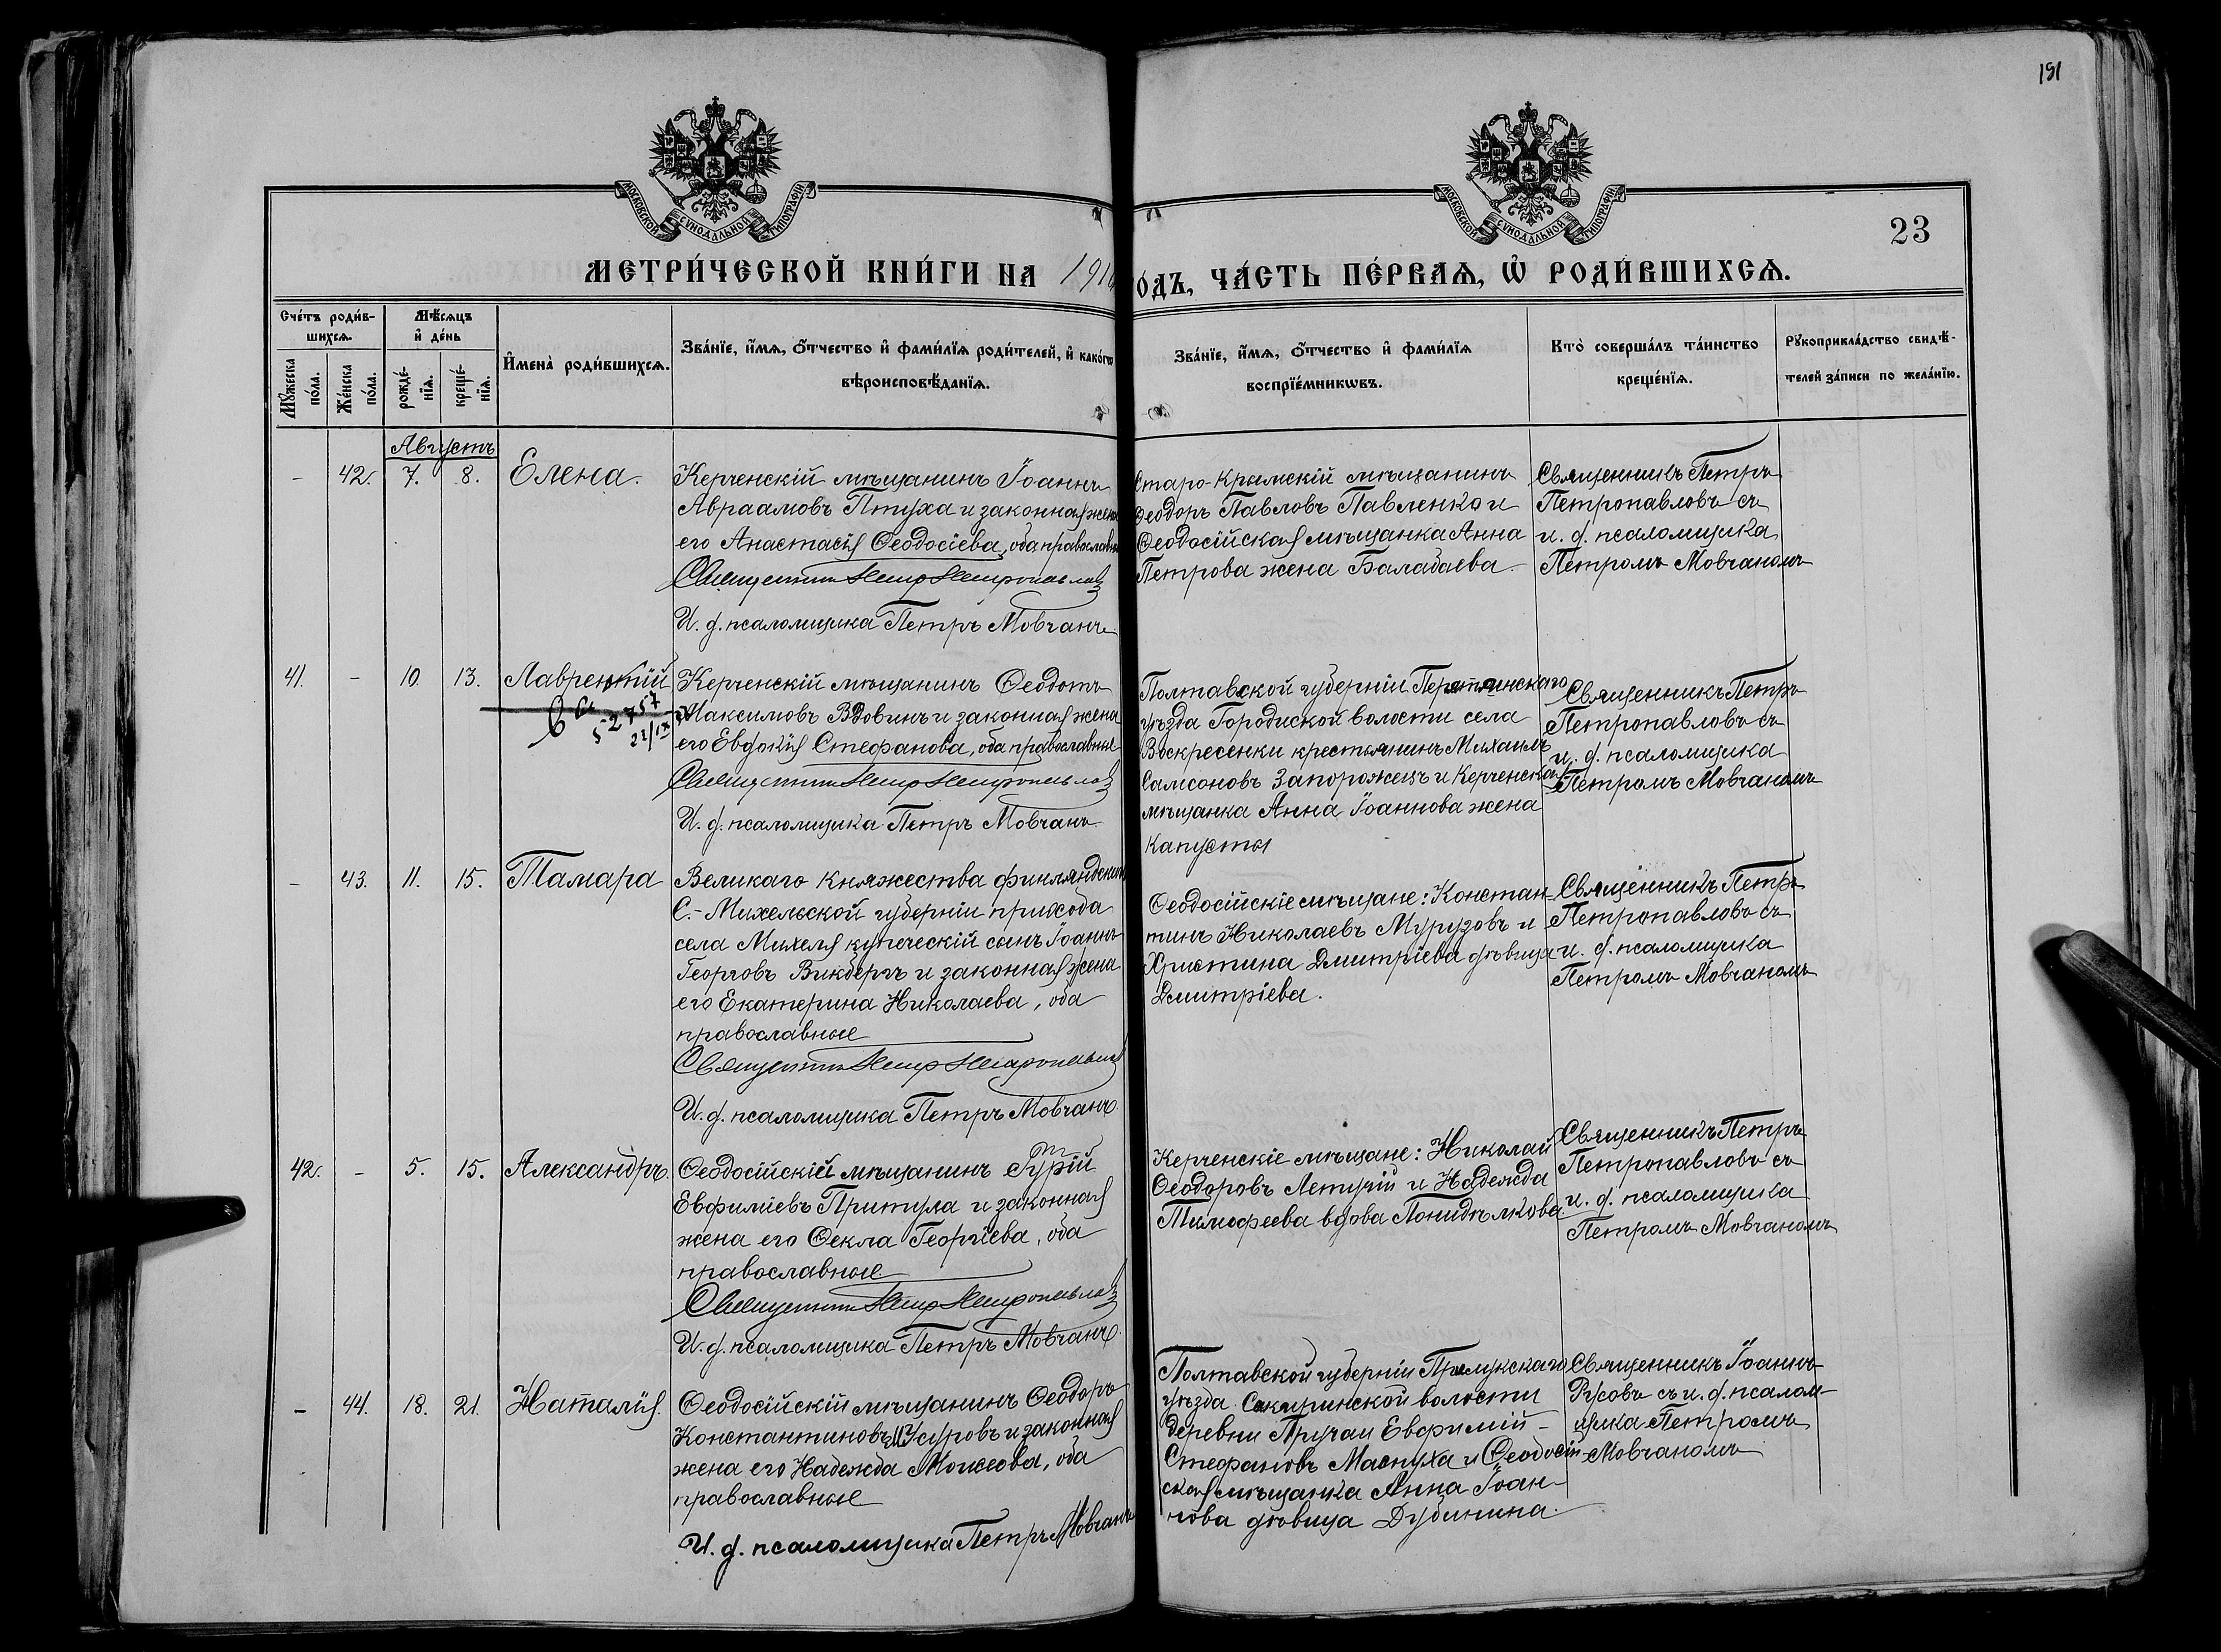 191
МОСКОВСКОЙ СѴНОДАЛЬНОЙ ТИПОГРАФІИ
МОСКОВСКОЙ СѴНОДАЛЬНОЙ ТИПОГРАФІИ
23
МЕТРИ́ЧЕСКОЙ КНИ́ГИ НА 191
ОДЪ, ЧА́СТЬ ПЕ́РВАѦ, Ѡ҆ РОДИ́ВШИХСѦ.
Сче́тъ роди́в-
шихсѧ.
Мꙋ́жеска по́ла.
Же́нска по́ла.
Мѣ́сѧцъ
и҆ де́нь
рожде́-нїѧ.
креще́-нїѧ.
И҆мена̀ роди́вшихсѧ.
Зва́нїе, и҆́мѧ, ѻ҆́тчество и҆ фами́лїѧ роди́телей, и҆ како́гѡ
вѣроисповѣ́данїѧ.
Зва́нїе, и҆́мѧ, ѻ҆́тчество и҆ фами́лїѧ
воспрїе́мникѡвъ.
Кто̀ соверша́лъ та́инство
креще́нїѧ.
Рꙋкоприкла́дство свидѣ́-
телей за́писи по жела́нїю.
Августъ
- 42. 7. 8. Елена.
Керченскій мѣщанинъ Іоаннъ
Авраамовъ Птуха и законная жена
его Анастасія Ѳеодосіева, оба православные
Священникъ Петръ Петропавловъ
И. д. псаломщика Петръ Мовчанъ
Старо-Крымскій мѣщанинъ
Ѳеодоръ Павловъ Павленко и
Ѳеодосійская мѣщанка Анна
Петрова жена Балабаева.
Священникъ Петръ
Петропавловъ съ
и. д. псаломщика
Петромъ Мовчаномъ
41. - 10. 13. Лаврентій
52757
Керченскій мѣщанинъ Ѳеодотъ
Максимовъ Вдовинъ и законная жена
его Евдокія Стефанова, оба православные
Священникъ Петръ Петропавловъ
И. д. псаломщика Петръ Мовчанъ.
Полтавской губерніи Пирятинскаго
уѣзда Городиской волости села
Воскресенки крестьянинъ Михаилъ
Самсоновъ Запорожецъ и Керченская
мѣщанка Анна Іоаннова жена
Капусты
Священникъ Петръ
Петропавловъ съ
и. д. псаломщика
Петромъ Мовчаномъ
- 43. 11. 15. Тамара
Великаго Княжества Финляндскаго
С.-Михельской губерніи прихода
села Михеля купеческій сынъ Іоаннъ
Георговъ Викбергъ и законная жена
его Екатерина Николаева, оба
православные
Священникъ Петръ Петропавловъ
И. д. псаломщика Петръ Мовчанъ.
Ѳеодосійскіе мѣщане: Констан-
тинъ Николаевъ Мурузовъ и
Христина Дмитріева дѣвица
Дмитріева.
Священникъ Петръ
Петропавловъ съ
и. д. псаломщика
Петромъ Мовчаномъ
42. - 5. 15. Александръ.
Ѳеодосійскій мѣщанинъ Гурій
Евфиміевъ Притула и законная
жена его Ѳекла Георгіева, оба
православные.
Священникъ Петръ Петропавловъ
И. д. псаломщика Петръ Мовчанъ.
Керченскіе мѣщане: Николай
Ѳеодоровъ Летучій и Надежда
Тимофеева вдова Понидѣлкова.
Священникъ Петръ
Петропавловъ съ
и. д. псаломщика
Петромъ Мовчаномъ
- 44. 18. 21. Наталія.
Ѳеодосійскій мѣщанинъ Ѳеодоръ
Константиновъ и законная
жена его Надежда Моисеова, оба
православные
И. д. псаломщика Петръ Мовчанъ
Полтавской губерніи Прилукскаго
уѣзда волости
деревни Евфимій
Стефановъ Маслуха и Ѳеодосій-
ская мѣщанка Анна Іоан-
нова дѣвица Дубинина.
Священникъ Іоаннъ
Русовъ съ и. д. псалом-
щика Петромъ
Мовчаномъ